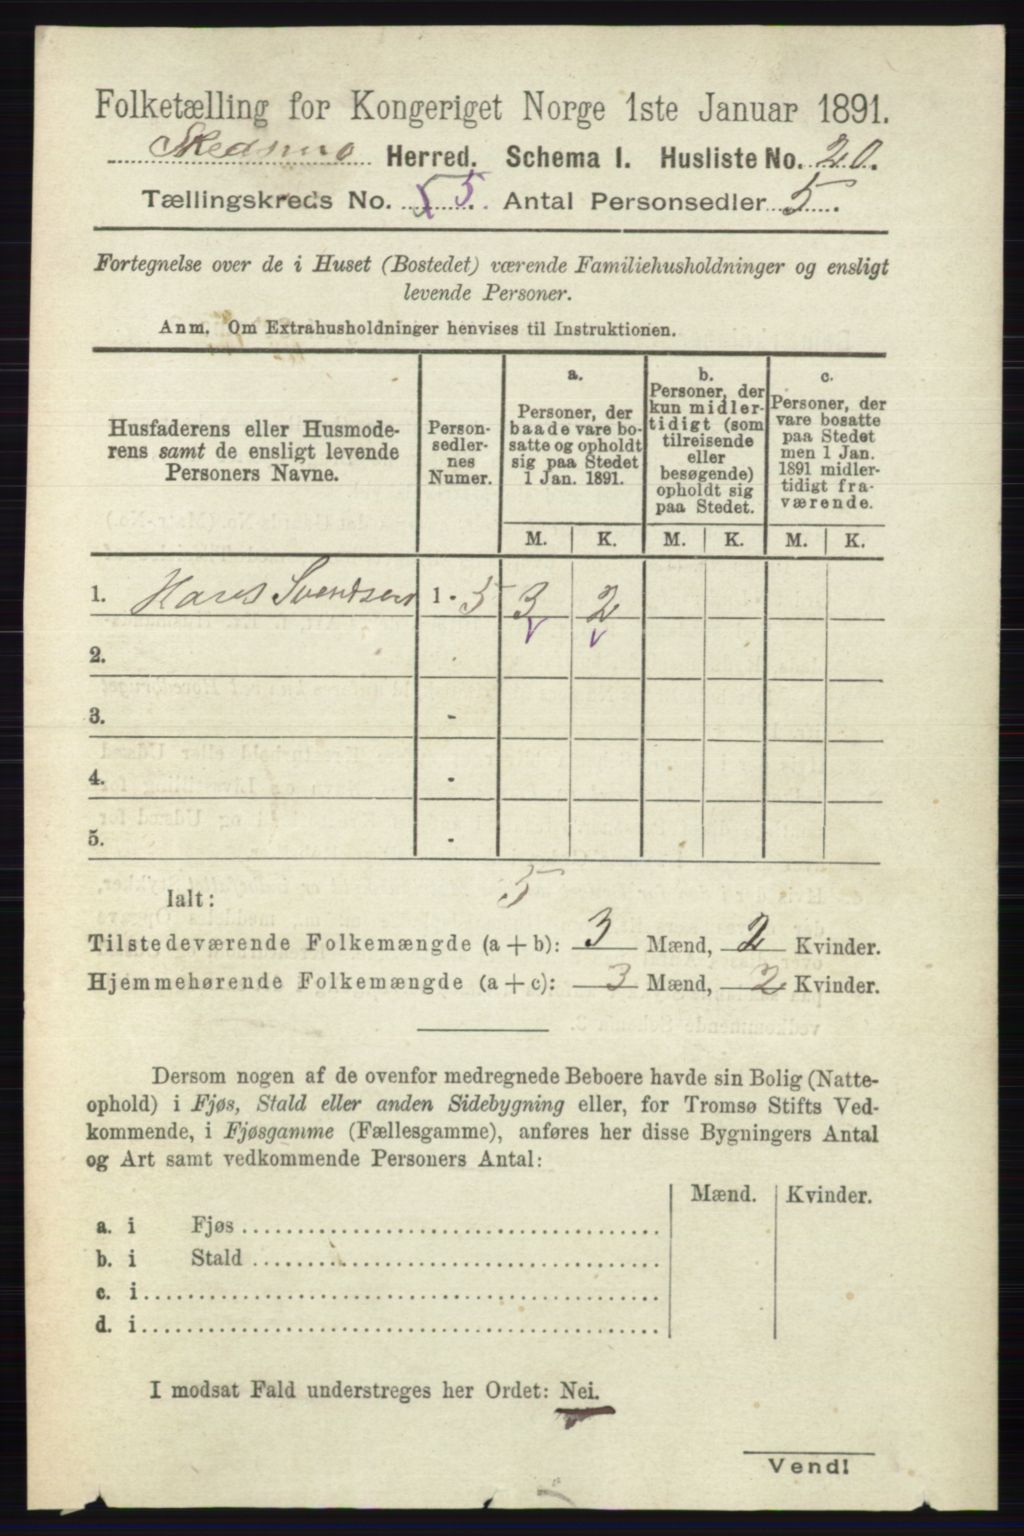 Folketælling for Kongeriget Norge 1ste Januar 1891.
Skedsmo Herred. Schema I. Husliste No. 20.
Tællingskreds No. 5. Antal Personsedler 5.
Fortegnelse over de i Huset (Bostedet) værende Familiehusholdninger og ensligt
levende Personer.
Anm. Om Extrahusholdninger henvises til Instruktionen.
Husfaderens eller Husmode-
rens samt de ensligt levende
Personers Navne.
Person-
sedler-
nes
Numer.
a.
Personer, der
baade vare bo-
satte og opholdt
sig paa Stedet
1 Jan. 1891.
b.
Personer, der
kun midler-
tidigt (som
tilreisende
eller
besøgende)
opholdt sig
paa Stedet.
c.
Personer, der
vare bosatte
paa Stedet
men 1 Jan.
1891 midler-
tidigt fra-
værende.
M. K. M. K. M. K.
1. Hans Svendsen 1 - 5 3 2
2.
3. -
4. -
5. -
5
Ialt:
Tilstedeværende Folkemængde (a + b): 3 Mænd, 2 Kvinder.
Hjemmehørende Folkemængde (a + c): 3 Mænd, 2 Kvinder.
Dersom nogen af de ovenfor medregnede Beboere havde sin Bolig (Natte-
ophold) i Fjøs, Stald eller anden Sidebygning eller, for Tromsø Stifts Ved-
kommende, i Fjøsgamme (Fællesgamme), anføres her disse Bygningers Antal
og Art samt vedkommende Personers Antal:
Mænd. Kvinder.
a. i Fjøs
b. i Stald
c. i
d. i
I modsat Fald understreges her Ordet: Nei.
Vend!